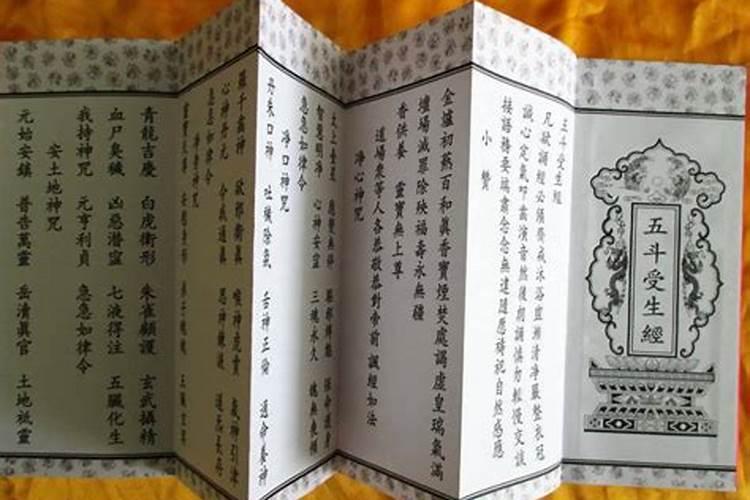 五斗受生經
五斗受生經
凡欲誦經必須齋戒沐浴盥漱清淨嚴整衣冠
誠心定氣叩齒演音然後朗誦慎勿輕慢交談
接語務要端肅念念無違隨愿禱祀自然感應
小贊
金爐初爇百和真香寶煙焚處謁虛皇瑞氣滿
壇場滅罪除殃福壽永無疆
香供養 靈寶無上尊
道場衆等人各恭敬恭對帝前 誦經如法
淨心神咒
太上台星 應變無停 驅邪縛魅 保命護身
智慧明淨 心神安寧 三魂永久 魄無喪傾
急急如律令
淨口神咒
丹朱口神 吐穢除氛 舌神正倫 通命養神
羅千齒神 却邪衛真 喉神虎賁 氣神引津
心神丹元 令我通真 思神鍊液 道炁長存
急急如律令
淨身神咒
靈寶天尊 安慰身形 弟子魂魄 五臟玄冥
青龍吉慶 白虎衛形 朱雀顧護 玄武攝精
血尸臭穢 凶惡潛寍 七液得注 五臟化生
我持神咒 元亨利貞 急急如律令
安土地神咒
元始安鎮 普告萬靈 岳瀆真官 土地祗靈